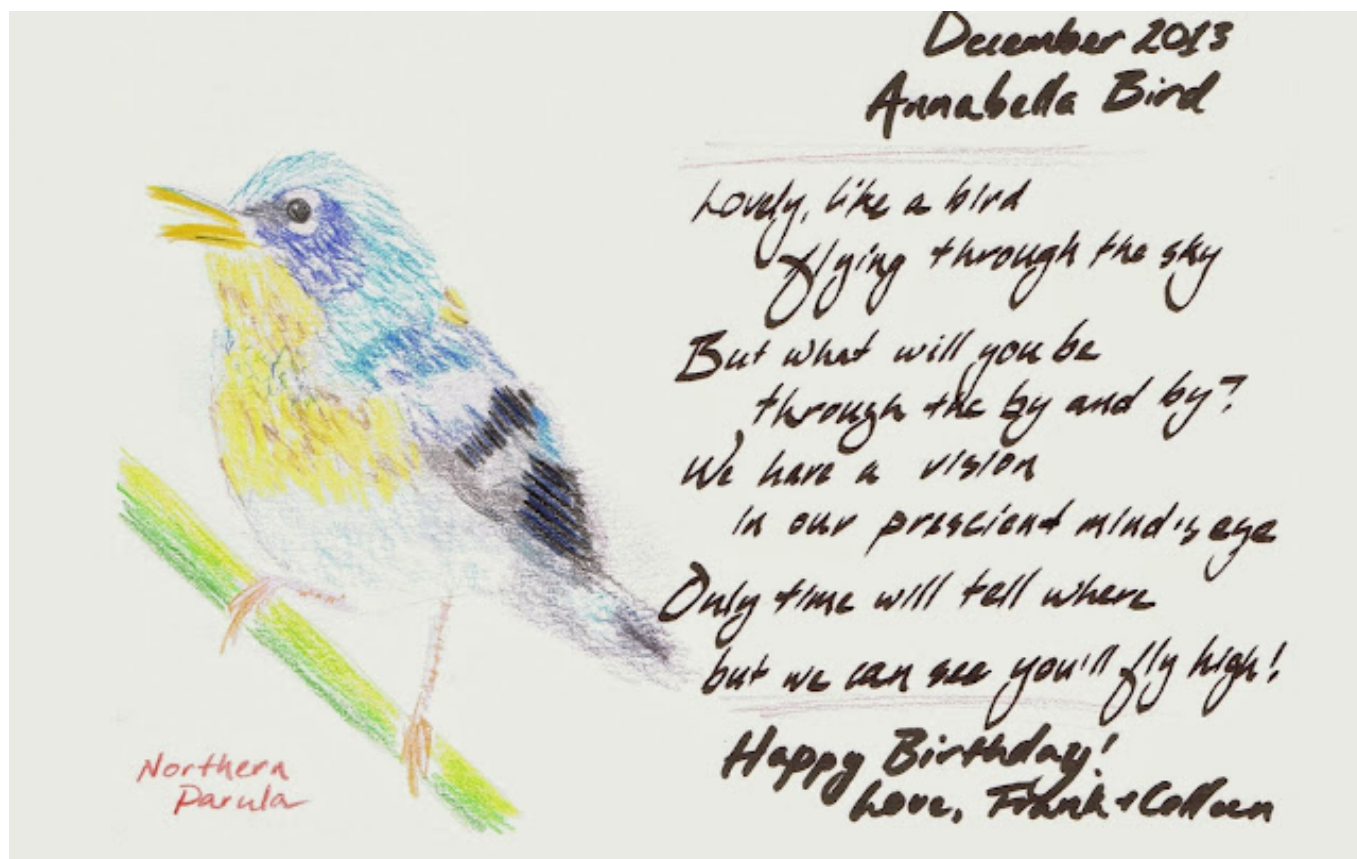 December 2013
Annabella Bird
Lovely, like a bird
flying through the sky
But what will you be
through the by and by?
We have a vision
in our prescient mind's eye
Only time will tell where
but we can see you'll fly high!
Happy Birthday!
Love, Frank + Colleen
Northern
Parula